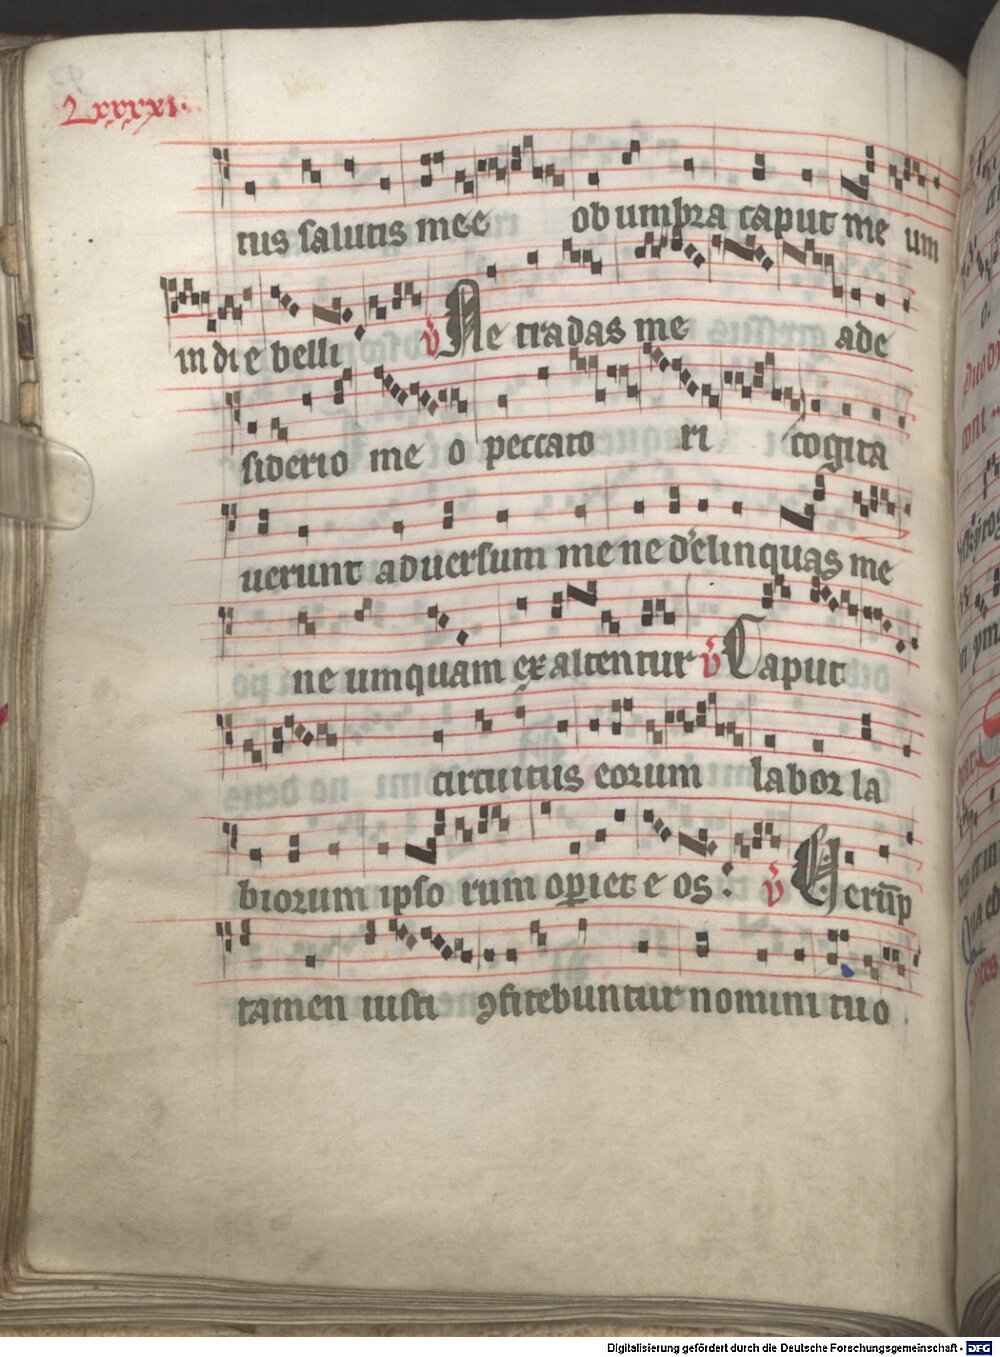 Lxxxxi.
tus salutis mee ob umbra caput me um
in die belli v Ne tradas me ade
siderio me o peccato ri cogita
uerunt aduersum me ne delinquas me
ne umquam exaltentur v Caput
circuitus eorum labor la
biorum ipso rum opiet e os : v Uerūp
tamen iusti ꝯfitebuntur nomini tuo
Digitalisierung gefördert durch die Deutsche Forschungsgemeinschaft - DFG